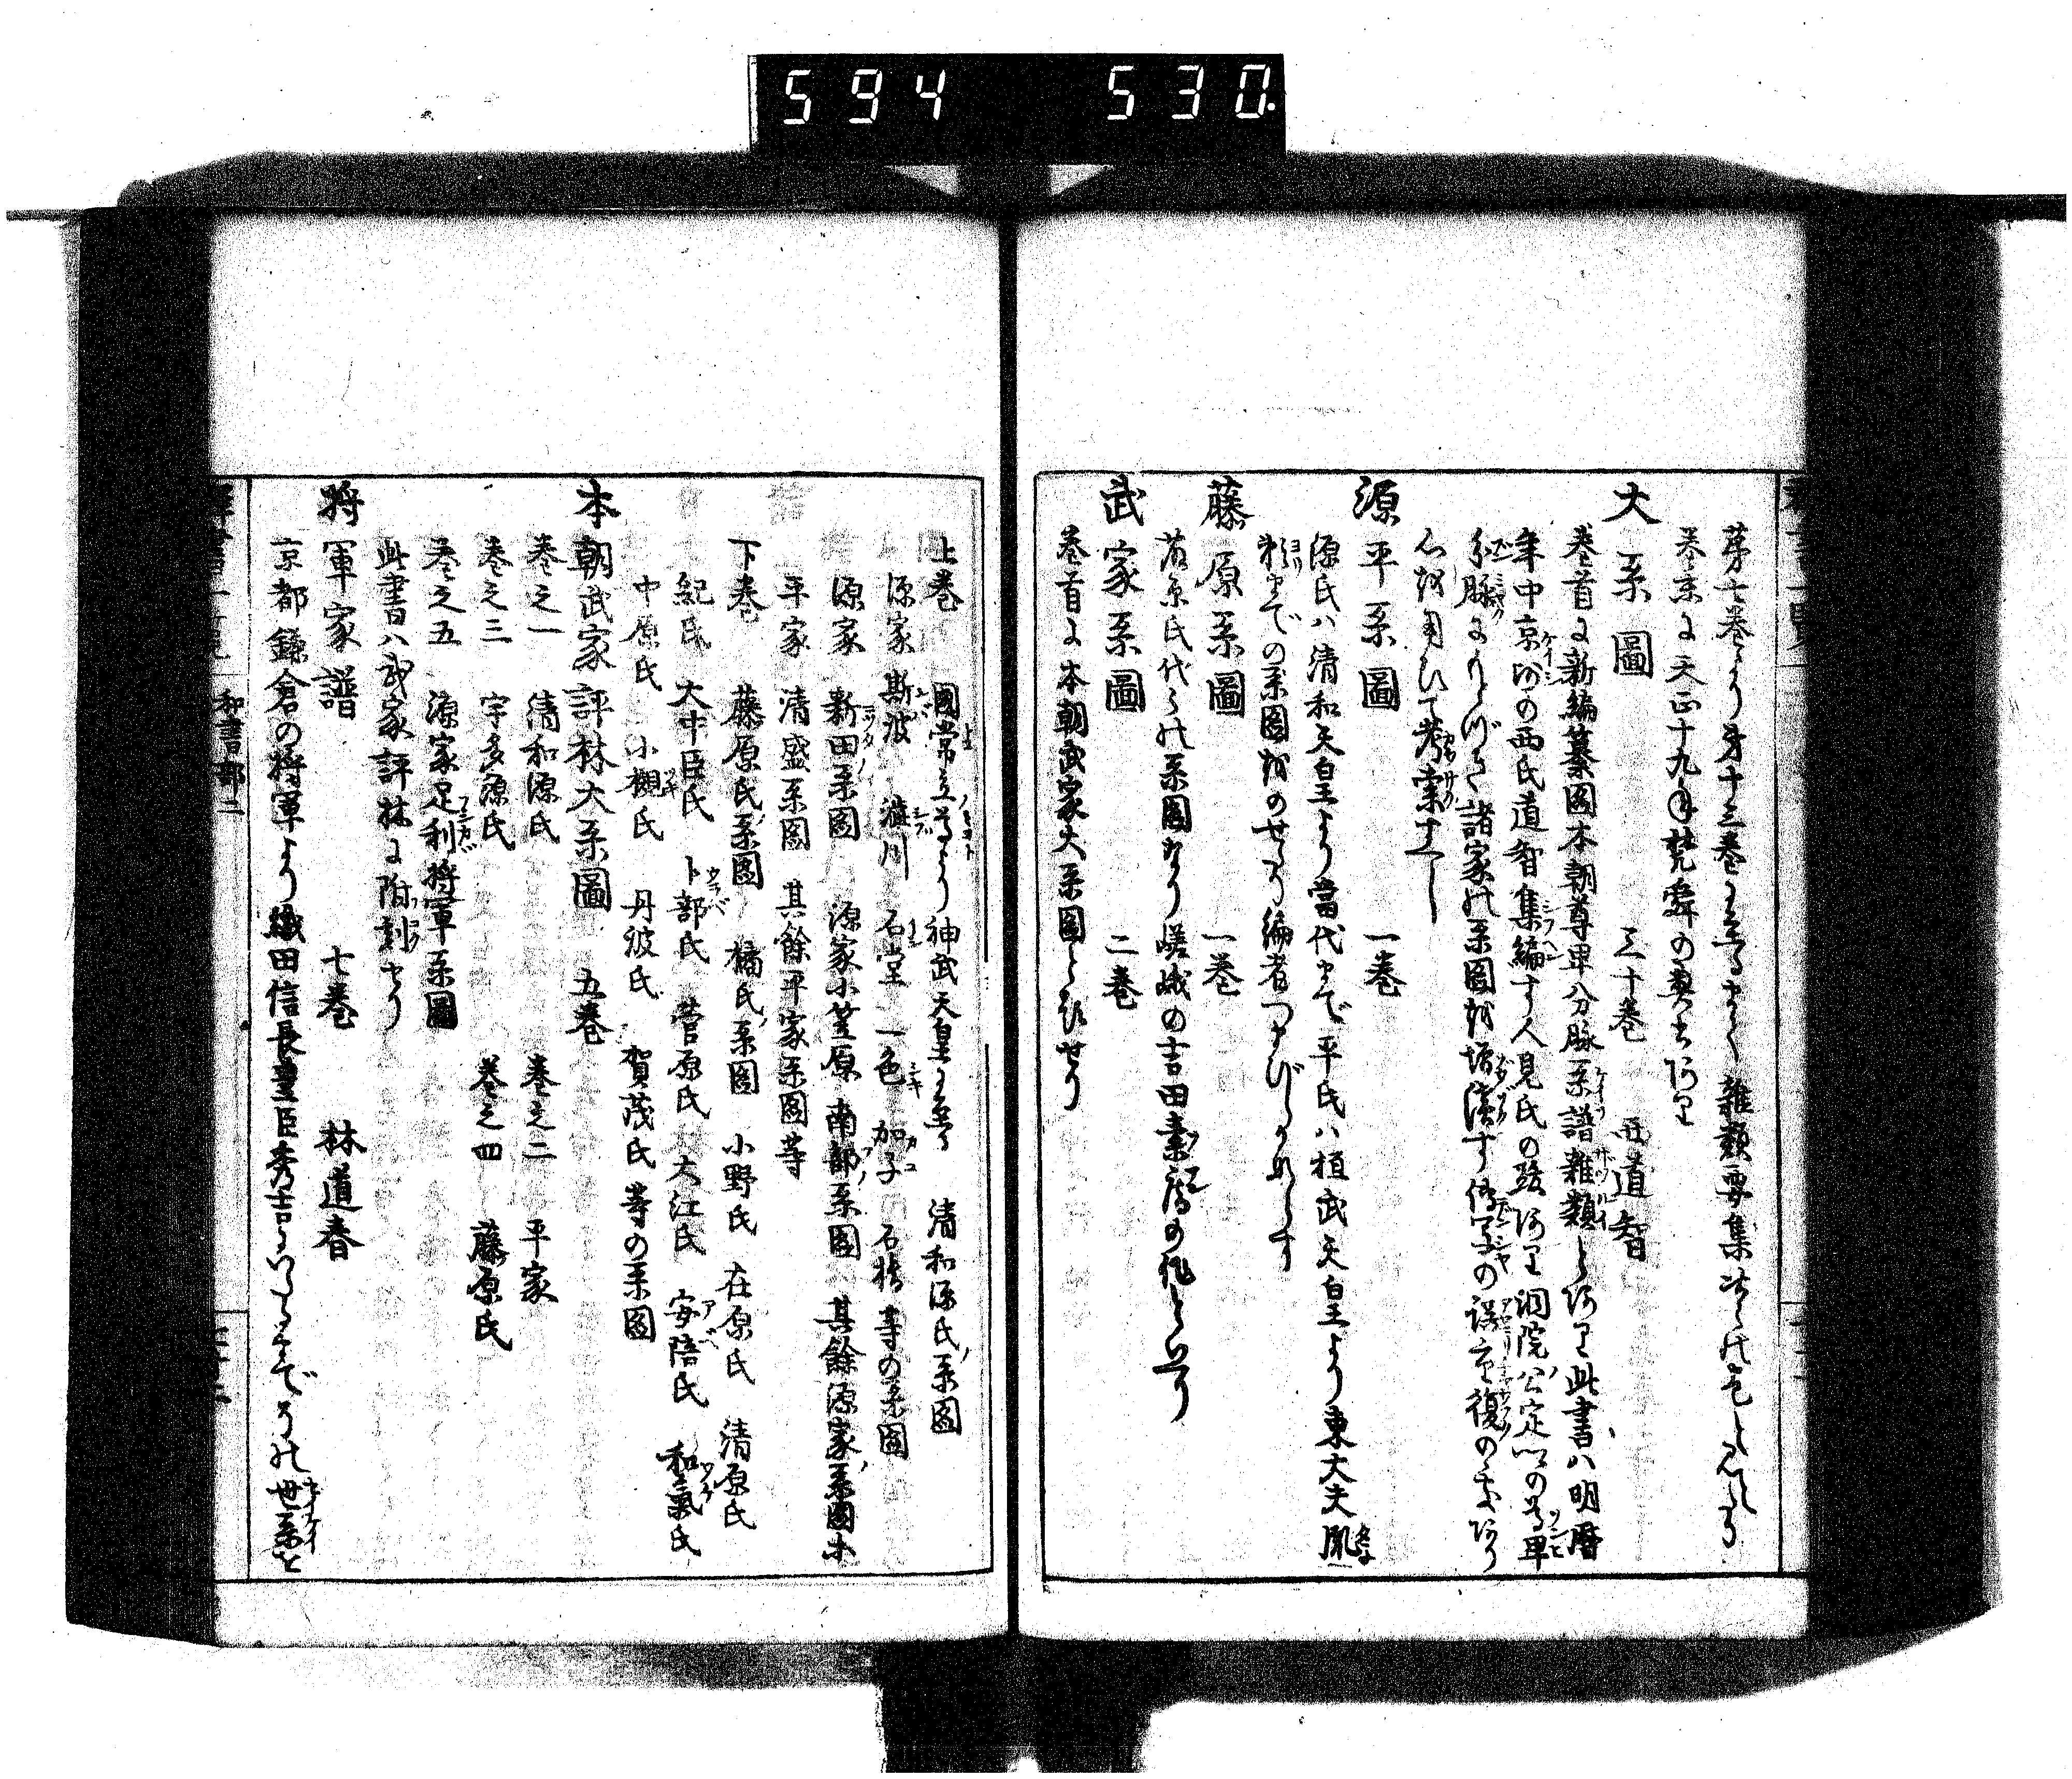 594 530.
第七巻より第十三巻にいたるまて雑類要集次第の也としれたり
巻末に天正十九年梵舜の奥書あり
大系圖 三十巻 西道智
巻首に新編纂図本朝尊卑分脉系譜雑類とあり此書ハ明暦
年中京師の西氏道智集編す人見氏の跋あり洞院公定公の尊卑
分脉にもとづき諸家の系図を増済す傳写の誤重復の事あり
心を用ひて考索すべし
源平系圖 一巻
源氏ハ清和天皇より當代まで平氏ハ桓武天皇より東大夫胤
頼までの系図をのせたり編者つまびらかならす
藤原系圖 一巻
藤原氏代々の系図なり嵯峨の吉田素庵の作といへり
武家系圖 二巻
巻首に本朝武家大系図と題せり
上巻 國常立尊より神武天皇に至る 清和源氏ノ系図
源家 斯波 澁川 石堂 一色 加子 石橋等の系図
源家 新田ノ系図 源家小笠原 南部ノ系図 其餘源家ノ系図小
平家 清盛系図 其餘平家系図等
下巻 藤原氏ノ系図 橘氏ノ系図 小野氏 在原氏 清原氏
紀氏 大中臣氏 卜部氏 菅原氏 大江氏 安陪氏 和氣氏
中原氏 小槻氏 丹波氏 賀茂氏等の系図
本朝武家評林大系圖 五巻
巻之一 清和源氏 巻之二 平家
巻之三 宇多源氏 巻之四 藤原氏
巻之五 源家足利将軍系圖
此書ハ武家評林に附刻せり
将軍家譜 七巻 林道春
京都鎌倉の将軍より織田信長豊臣秀吉にいたるまでその世系を
和書部二